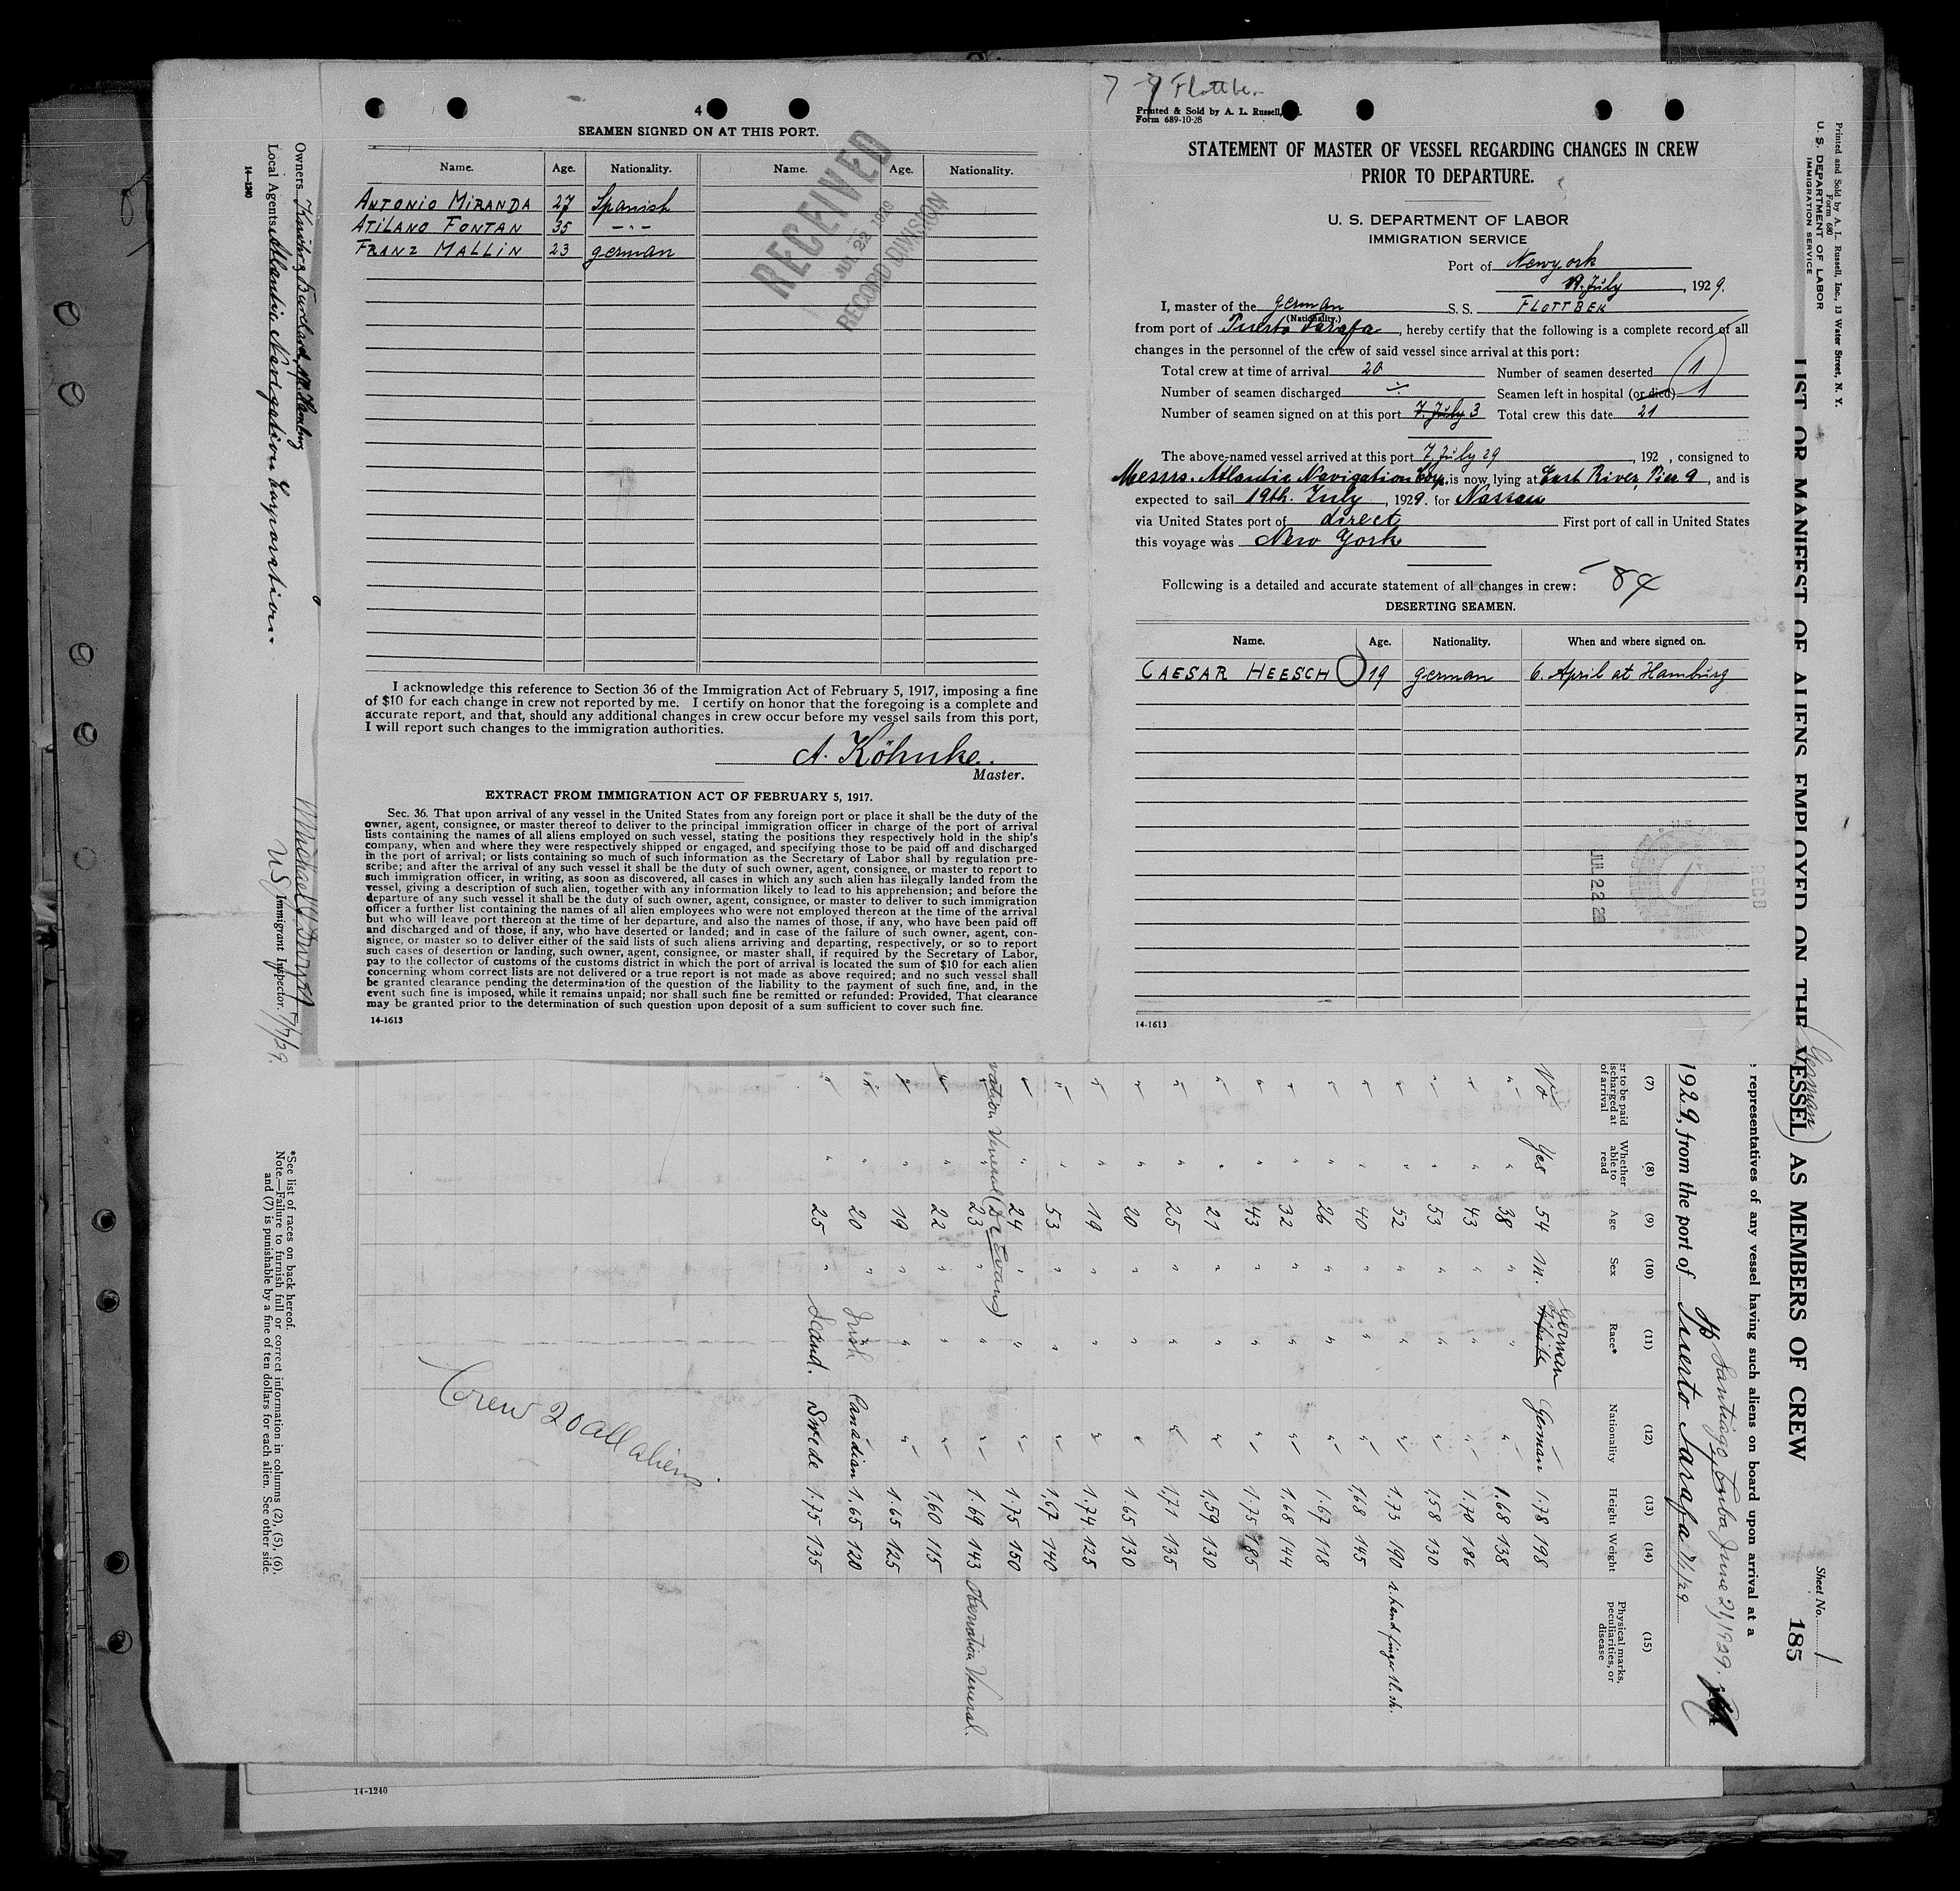 4
SEAMEN SIGNED ON AT THIS PORT.
Name. Age. Nationality. Name. Age. Nationality.
ANTONIO MIRANDA 27 Spanish
ATILANO FONTAN 35 -"-
FRANZ MALLIN 23 german
RECEIVED
JUL 22 1929
RECORD DIVISION
I acknowledge this reference to Section 36 of the Immigration Act of February 5, 1917, imposing a fine
of $10 for each change in crew not reported by me. I certify on honor that the foregoing is a complete and
accurate report, and that, should any additional changes in crew occur before my vessel sails from this port,
I will report such changes to the immigration authorities.
A. Köhnke.
Master.
EXTRACT FROM IMMIGRATION ACT OF FEBRUARY 5, 1917.
Sec. 36. That upon arrival of any vessel in the United States from any foreign port or place it shall be the duty of the
owner, agent, consignee, or master thereof to deliver to the principal immigration officer in charge of the port of arrival
lists containing the names of all aliens employed on such vessel, stating the positions they respectively hold in the ship's
company, when and where they were respectively shipped or engaged, and specifying those to be paid off and discharged
in the port of arrival; or lists containing so much of such information as the Secretary of Labor shall by regulation pre-
scribe; and after the arrival of any such vessel it shall be the duty of such owner, agent, consignee, or master to report to
such immigration officer, in writing, as soon as discovered, all cases in which any such alien has illegally landed from the
vessel, giving a description of such alien, together with any information likely to lead to his apprehension; and before the
departure of any such vessel it shall be the duty of such owner, agent, consignee, or master to deliver to such immigration
officer a further list containing the names of all alien employees who were not employed thereon at the time of the arrival
but who will leave port thereon at the time of her departure, and also the names of those, if any, who have been paid off
and discharged and of those, if any, who have deserted or landed; and in case of the failure of such owner, agent, con-
signee, or master so to deliver either of the said lists of such aliens arriving and departing, respectively, or so to report
such cases of desertion or landing, such owner, agent, consignee, or master shall, if required by the Secretary of Labor,
pay to the collector of customs of the customs district in which the port of arrival is located the sum of $10 for each alien
concerning whom correct lists are not delivered or a true report is not made as above required; and no such vessel shall
be granted clearance pending the determination of the question of the liability to the payment of such fine, and, in the
event such fine is imposed, while it remains unpaid; nor shall such fine be remitted or refunded: Provided, That clearance
may be granted prior to the determination of such question upon deposit of a sum sufficient to cover such fine.
14-1613
7 Flottbek
Printed & Sold by A. L. Russell,
Form 689-10-28
STATEMENT OF MASTER OF VESSEL REGARDING CHANGES IN CREW
PRIOR TO DEPARTURE.
U. S. DEPARTMENT OF LABOR
IMMIGRATION SERVICE
Port of New york
July, 1929.
I, master of the german S. S. FLOTTBEK
(Nationality.)
from port of Puerto Tarafa, hereby certify that the following is a complete record of all
changes in the personnel of the crew of said vessel since arrival at this port:
Total crew at time of arrival 20 Number of seamen deserted 1
Number of seamen discharged ÷ Seamen left in hospital (or died) 1
Number of seamen signed on at this port 7. July 3 Total crew this date 21
The above-named vessel arrived at this port 7. July 29, 192 , consigned to
Messrs. Atlantic Navigation Corp. is now lying at East River, Pier 9, and is
expected to sail 19th. July, 1929. for Nassau
via United States port of direct First port of call in United States
this voyage was New York
Following is a detailed and accurate statement of all changes in crew: 84
DESERTING SEAMEN.
Name. Age. Nationality. When and where signed on.
CAESAR HEESCH 19 german 6. April at Hamburg
JUL 22 29
REC'D
14-1613
Printed and Sold by A. L. Russell, Inc., 13 Water Street, N. Y.
Form 680
U. S. DEPARTMENT OF LABOR
IMMIGRATION SERVICE
Sheet No. 1
185
LIST OR MANIFEST OF ALIENS EMPLOYED ON THE VESSEL AS MEMBERS OF CREW
(German)
representatives of any vessel having such aliens on board upon arrival at a
Santiago, Cuba, June 21, 1929.
1929, from the port of Puerto Tarafa 7/1/29
(7) (8) (9) (10) (11) (12) (13) (14) (15)
er to be paid
ischarged at
of arrival
Whether
able to
read
Age Sex Race* Nationality Height Weight
Physical marks,
peculiarities, or
disease
No Yes 54 m. German German 1.78 198
" " 38 " " " 1.68 138
" " 43 " " " 1.70 186
" " 53 " " " 1,58 130
" " 52 " " " 1.73 190 r. hand finger
" " 40 " " " 1,68 145
" " 26 " " " 1.67 118
" " 32 " " " 1.68 144
" " 43 " " " 1.75 185
" " 21 " " " 1,59 130
" " 25 " " " 1,71 135
" " 20 " " " 1.65 130
" " 19 " " " 1.74 125
" " 53 " " " 1,67 140
" " 24 " " " 1.75 150
" " 23 " " " 1.69 143 Observation Venereal.
vation Venereal (Dr Evans)
" " 22 " " " 1,60 115
" " 19 " " " 1.65 125
" " 20 " Irish Canadian 1.65 120
" " 25 " Scand. Swede 1.75 135
Crew 20 all aliens
Local Agents Atlantic Navigation Corporation.
14-1240
U S Immigrant Inspector. 7/7/29.
*See list of races on back hereof.
Note.—Failure to furnish full or correct information in columns (2), (5), (6),
and (7) is punishable by a fine of ten dollars for each alien. See other side.
14-1240